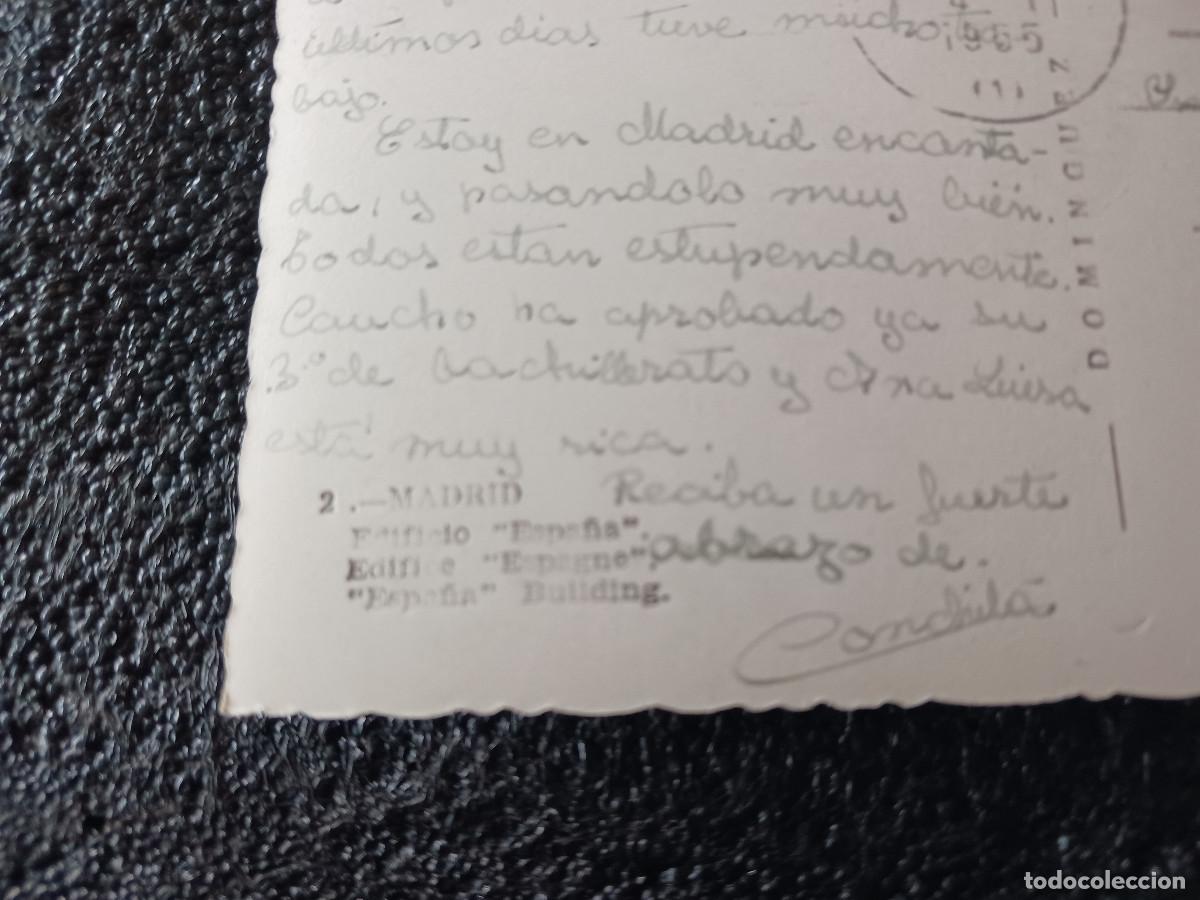 últimos dias tuve mucho tra-
bajo.
Estoy en Madrid encanta-
da, y pasandolo muy bién.
Todos están estupendamente.
Caucho ha aprobado ya su
3º de bachillerato y Ana Luisa
está muy rica.
Reciba un fuerte
abrazo de.
Conchita
2.-MADRID
Edificio "España".
Edifice "Espagne".
"España" Building.
1955
todocoleccion